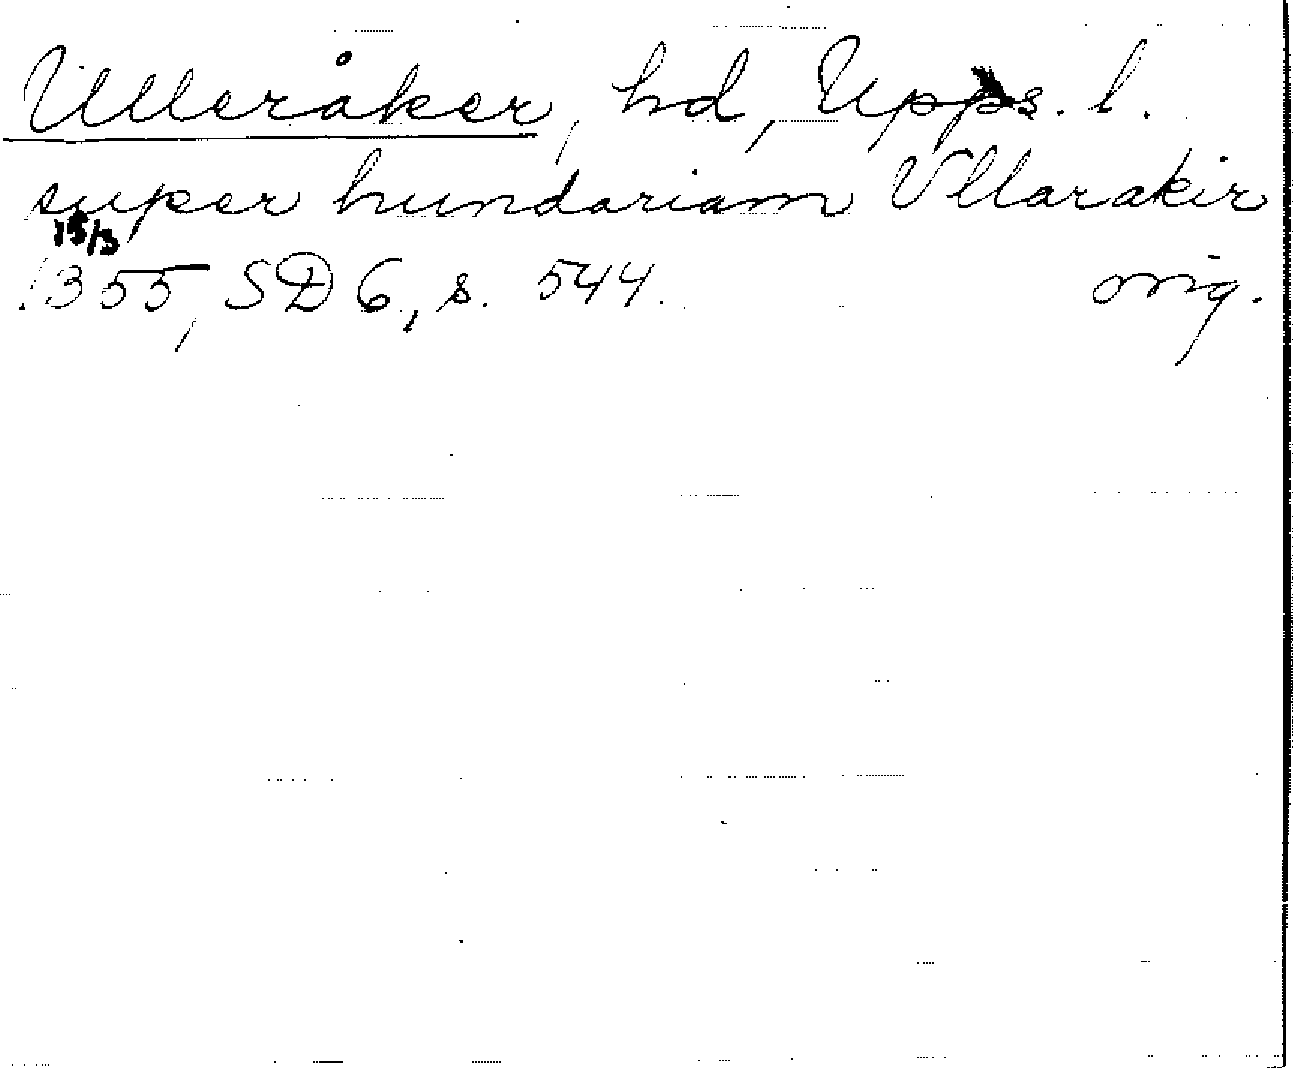 Ulleråker, hd, Upps. l.
super hundariam Vllarakir
15/3
1355, SD 6, s. 544. orig.